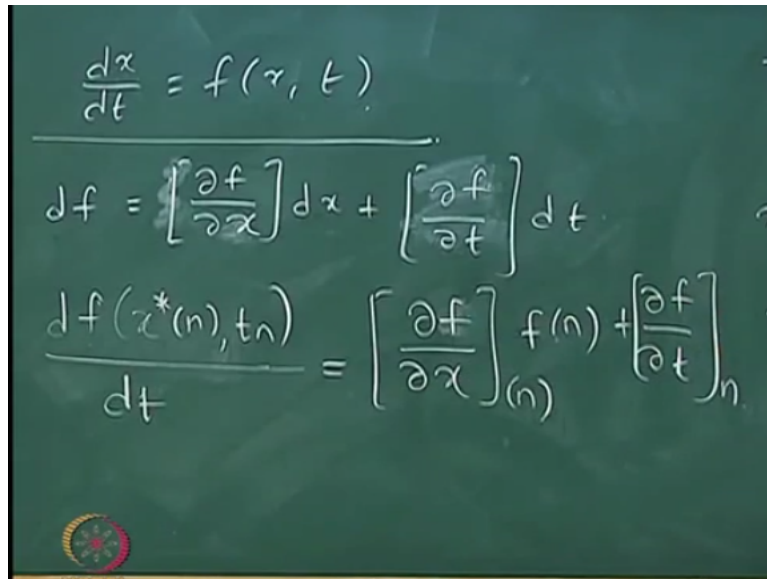 dx/dt = f(x, t)
df = [∂f/∂x] dx + [∂f/∂t] dt
df(x*(n), tn)/dt = [∂f/∂x](n) f(n) + [∂f/∂t]n